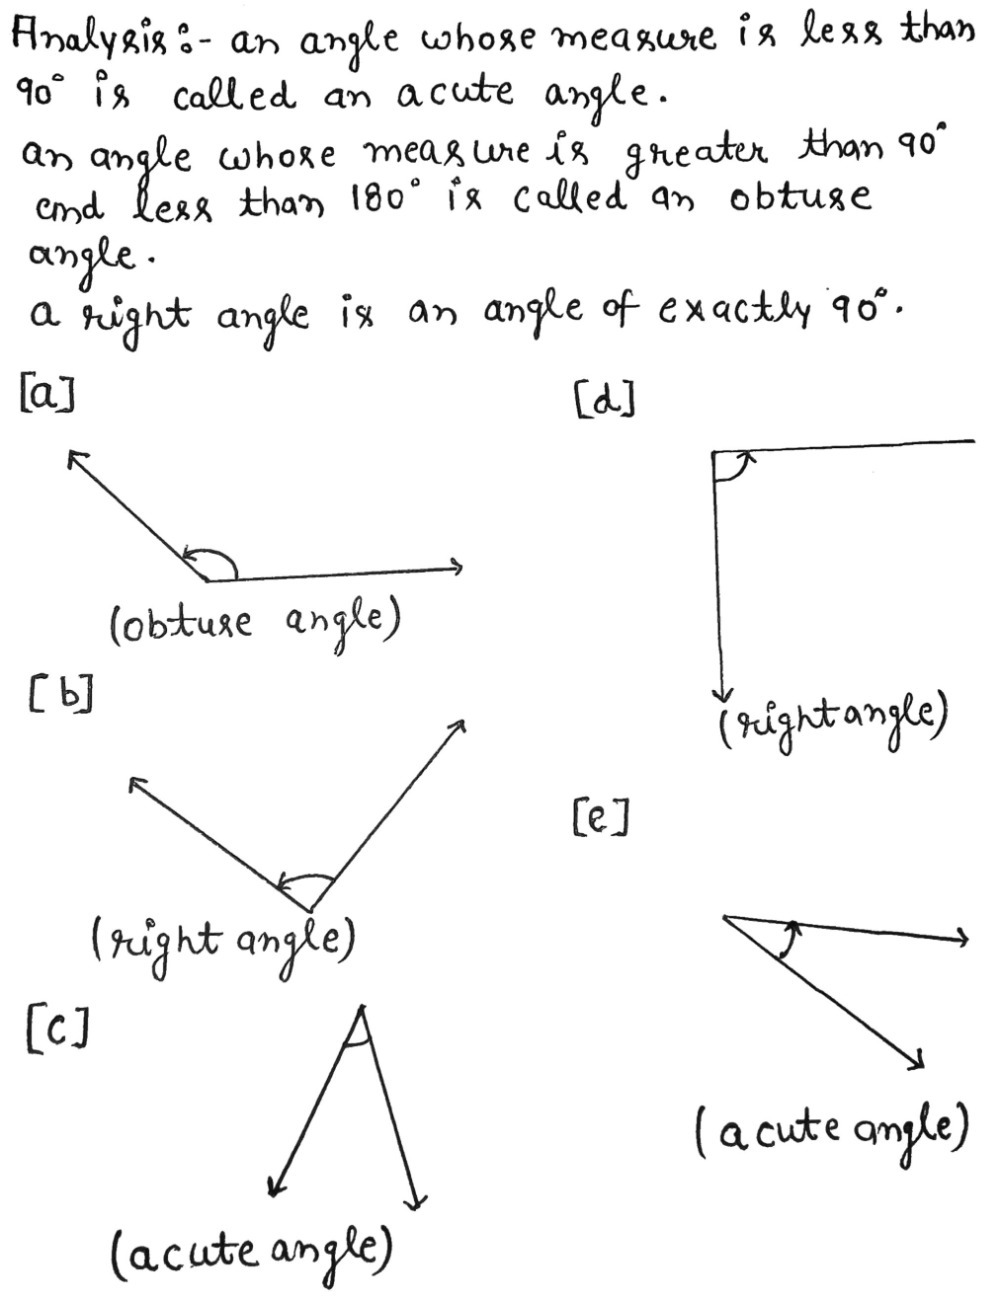 Analysis:- an angle whose measure is less than
90° is called an acute angle.
an angle whose measure is greater than 90°
and less than 180° is called an obtuse
angle.
a right angle is an angle of exactly 90°.
[a]
(obtuse angle)
[b]
(right angle)
[c]
(acute angle)
[d]
(right angle)
[e]
(acute angle)